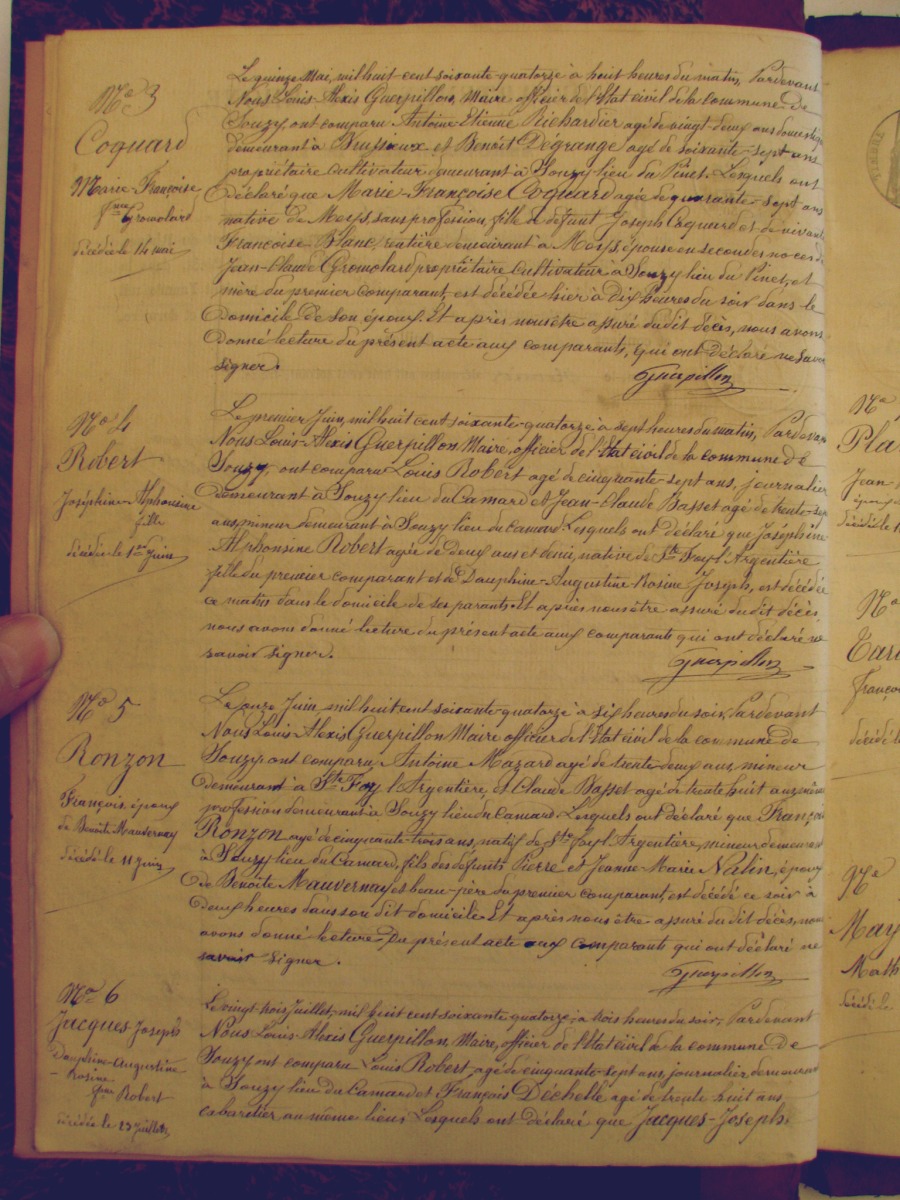 No 3
Coquard
Marie Françoise
fme Gromolard
décédée le 14 mai
Le quinze Mai, mil huit cent soixante-quatorze à huit heures du matin, Pardevant
Nous Louis-Alexis Guerpillon, Maire officier de l'Etat civil de la commune de
Souzy, ont comparu Antoine Etienne Richardier agé de vingt-deux ans domestique
demeurant à Brussieux et Benoît Dégrange agé de soixante-sept ans
propriétaire cultivateur demeurant à Souzy lieu du Pinet. Lesquels ont
déclaré que Marie-Françoise Coquard agée de quarante-sept ans
native de Meys, sans profession, fille de défunt Joseph Coquard et de vivante
Françoise Blanc, rentière demeurant à Meys, épouse en secondes noces de
Jean-Claude Gromolard propriétaire cultivateur à Souzy lieu du Pinet, et
mère du premier comparant, est décédée hier à dix heures du soir dans le
domicile de son époux. Et après nous être assuré du dit décès, nous avons
donné lecture du présent acte aux comparants, qui ont déclaré ne savoir
signer.
Guerpillon
No 4
Robert
Joséphine Alphonsine
fille
décédée le 1er Juin
Le premier Juin, mil huit cent soixante-quatorze à sept heures du matin, Pardevant
Nous Louis-Alexis Guerpillon Maire, officier de l'Etat civil de la commune de
Souzy, ont comparu Louis Robert agé de cinquante-sept ans, journalier
demeurant à Souzy lieu du Camard et Jean-Claude Basset agé de trente-sept
ans, mineur demeurant à Souzy lieu du Camard. Lesquels ont déclaré que Joséphine
Alphonsine Robert agée de deux ans et demi, native de Ste Foy-l'Argentière
fille du premier comparant et de Dauphine-Augustine-Rosine Joseph, est décédée
ce matin dans le domicile de ses parents. Et après nous être assuré du dit décès,
nous avons donné lecture du présent acte aux comparants qui ont déclaré ne
savoir signer.
Guerpillon
No 5
Ronzon
François, époux
de Benoîte Mauvernay
décédé le 11 Juin
Le onze Juin, mil huit cent soixante-quatorze à six heures du soir, Pardevant
Nous Louis-Alexis Guerpillon Maire officier de l'Etat civil de la commune de
Souzy, ont comparu, Antoine Mazard agé de trente-deux ans, mineur
demeurant à Ste Foy l'Argentière, et Claude Basset agé de trente huit ans même
profession demeurant à Souzy lieu du Camard. Lesquels ont déclaré que François
Ronzon agé de cinquante-trois ans, natif de Ste Foy-l'Argentière, mineur demeurant
à Souzy lieu du Camard, fils des défunts Pierre et Jeanne-Marie Nalin, époux
de Benoîte Mauvernay et beau-père du premier comparant, est décédé ce soir à
deux heures dans son dit domicile. Et après nous être assuré du dit décès, nous
avons donné lecture du présent acte aux comparants qui ont déclaré ne
savoir signer.
Guerpillon
No 6
Jacques-Joseph
Dauphine-Augustine
-Rosine
fme Robert
décédée le 23 Juillet
Le vingt trois Juillet, mil huit cent soixante quatorze, à trois heures du soir, Pardevant
Nous Louis-Alexis Guerpillon, Maire, officier de l'Etat civil de la commune de
Souzy ont comparu Louis Robert, agé de cinquante-sept ans, journalier, demeurant
à Souzy lieu du Camard et François Déchelle agé de trente huit ans
cabaretier au même lieu. Lesquels ont déclaré que Jacques-Joseph
TIMBRE
No
Pla
Jean-
décédé le 1
No
Tar
Franço
décédé l
No
May
Math
décédé le